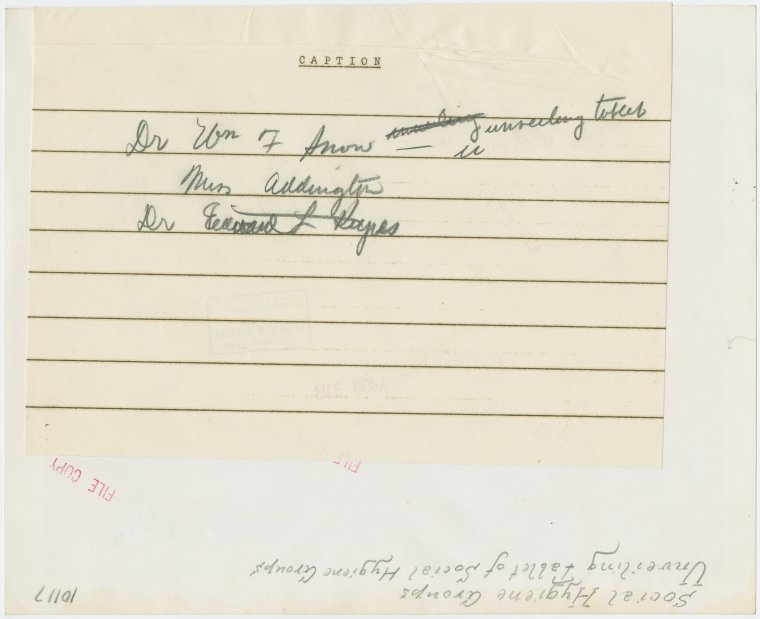 CAPTION
Dr Wm F Snow — unveiling tablet
"
Miss Addington
Dr Edward L Keyes
FILE COPY
FILE COPY
FILE
Social Hygiene Groups
Unveiling Tablet of Social Hygiene Groups
10117